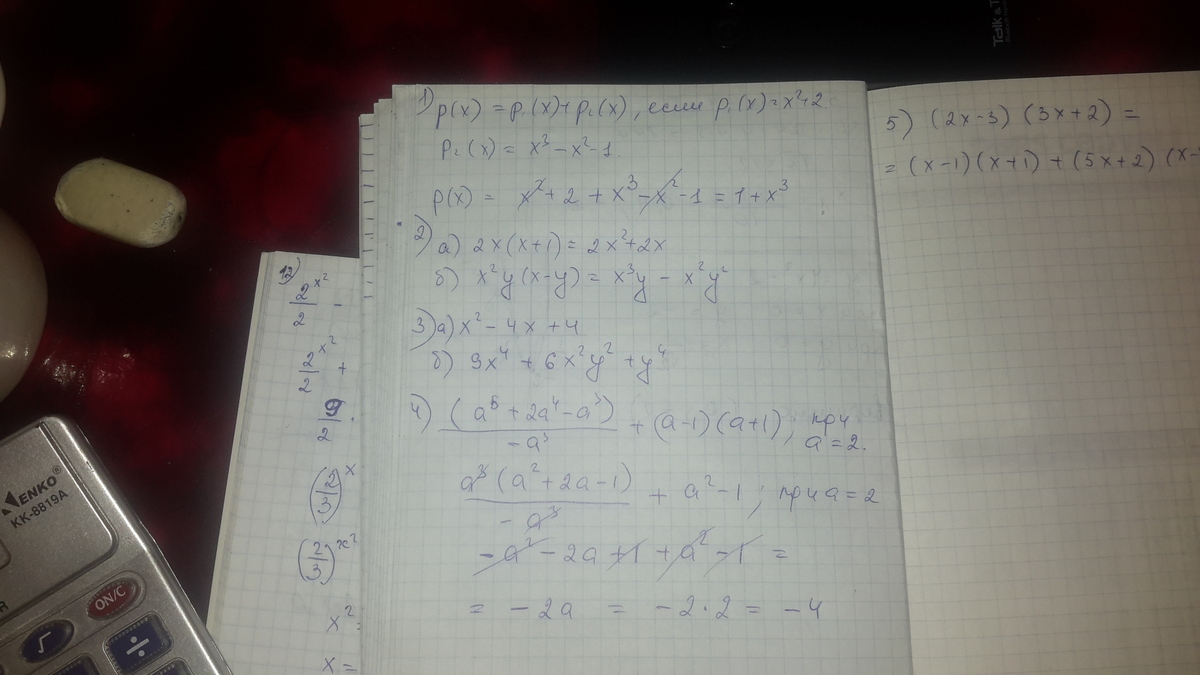 1) p(x) = p₁(x) + p₂(x), если p₁(x) = x² + 2
p₂(x) = x³ − x² − 1.
p(x) = x² + 2 + x³ − x² − 1 = 1 + x³
2) а) 2x(x+1) = 2x² + 2x
б) x²y(x−y) = x³y − x²y²
3) а) x² − 4x + 4
б) 9x⁴ + 6x²y² + y⁴
4) (a⁵ + 2a⁴ − a³) / −a³ + (a−1)(a+1); при a = 2.
a³(a² + 2a − 1) / −a³ + a² − 1; при a = 2
−a² − 2a + 1 + a² − 1 =
= −2a = −2·2 = −4
5) (2x−3)(3x+2) =
= (x−1)(x+1) + (5x+2)(x−
12)
2^x² / 2 −
2^x² / 2 +
9 / 2 ·
(2/3)^x
(2/3)^x²
x² =
x =
KENKO®
KK-8819A
ON/C
√
÷
Talk &